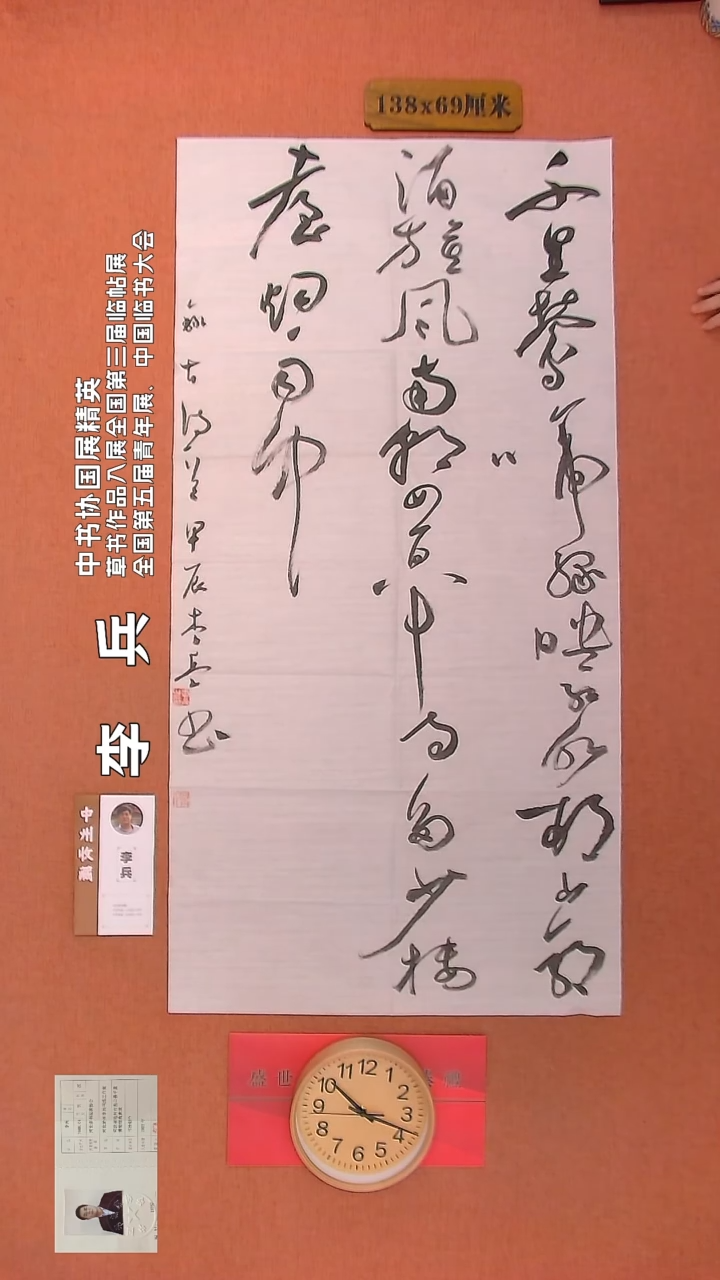 138x69厘米
千里鶯啼綠映紅水村山郭
酒旗風南朝四百八十寺多少樓
臺烟雨中
錄古詩一首甲辰李兵書
中书协国展精英
草书作品入展全国第三届临帖展
全国第五届青年展、中国临书大会
李 兵
盛世
12 1 2 3 4 5 6 7 8 9 10 11